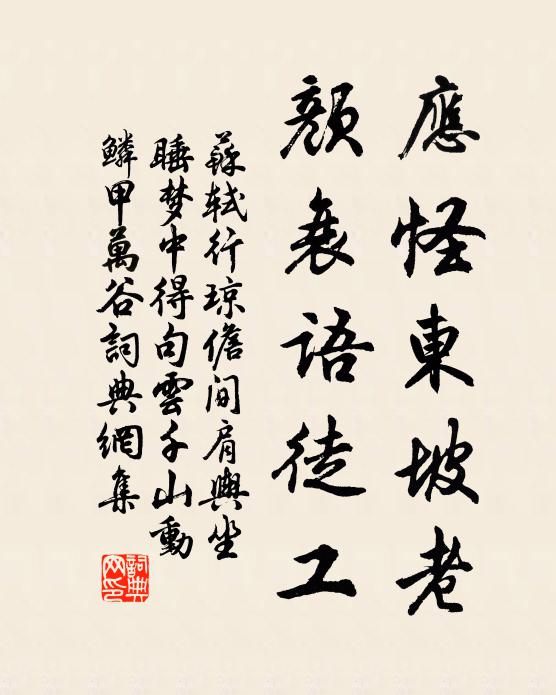 應怪東坡老
顏衰語徒工
蘇軾行琼儋间肩輿坐
睡梦中得句雲千山動
鱗甲萬谷詞典網集
詞典网印